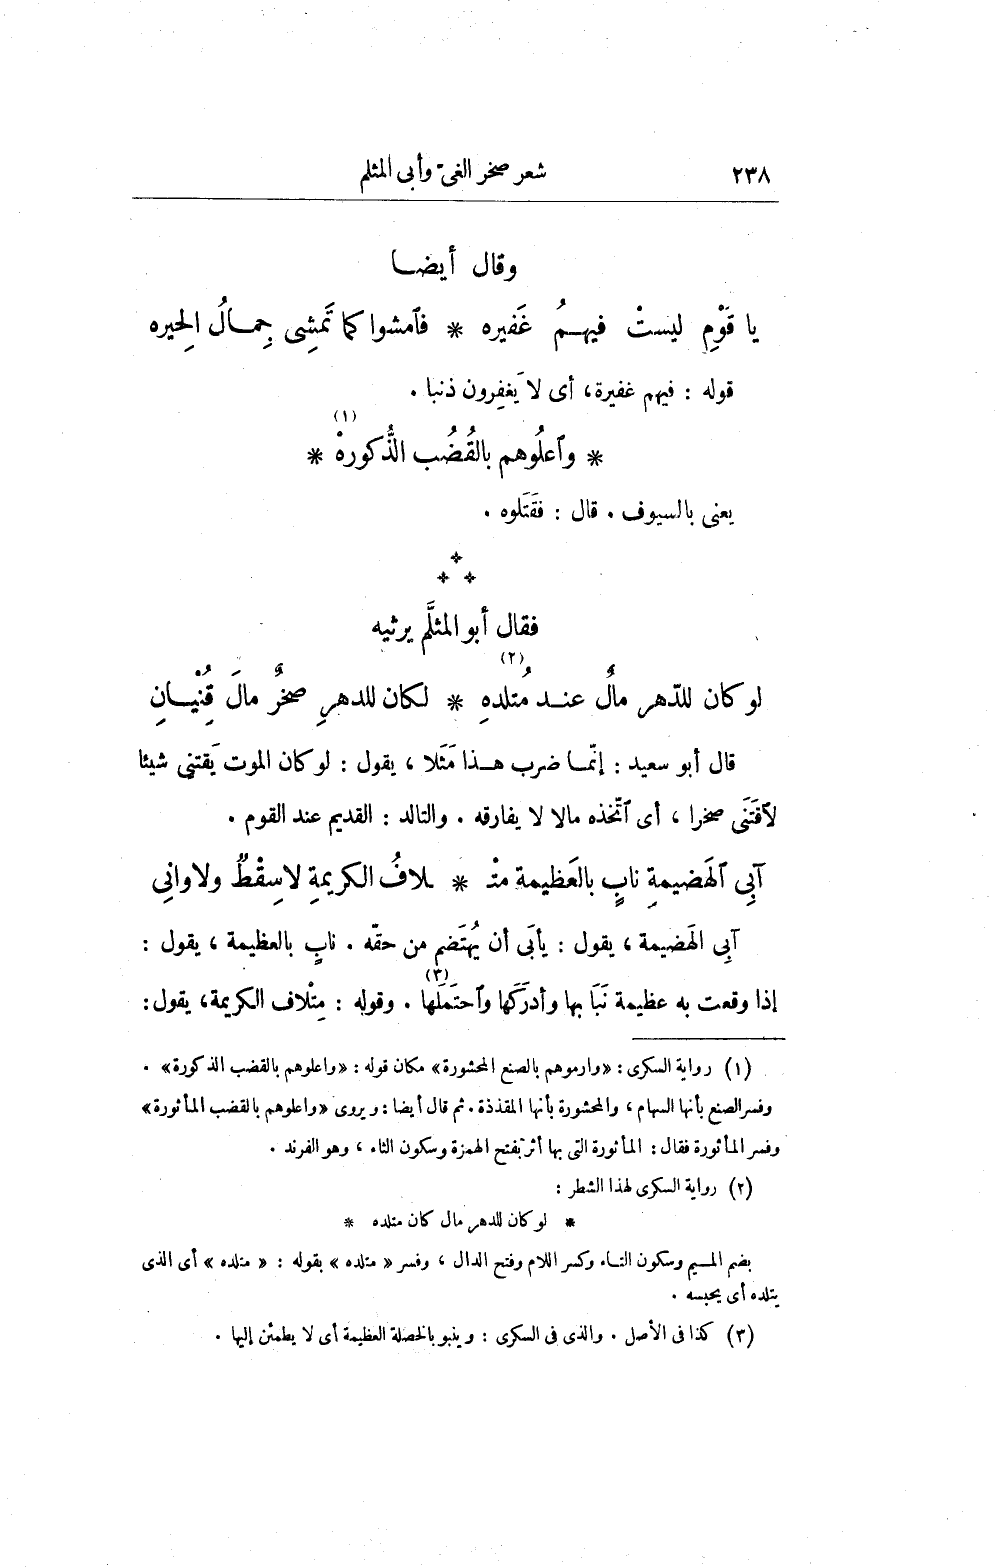 ٢٣٨ شعر صخر الغىّ وأبى المثلم
وقال أيضا
يا قَوْمِ ليستْ فيهمُ غَفيره * فٱمشوا كما تَمشِى جِمالُ الحِيره
قوله : فيهم غفيرة، أى لا يَغفِرون ذنبا .
* وٱعلُوهم بالقُضُب الذُّكورهْ (١) *
يعنى بالسيوف . قال : فقَتَلوه .
فقال أبو المثلَّم يرثيه
لو كان للدّهر مالٌ عند مُتلدهِ (٢) * لكان للدهرِ صخرٌ مالَ قُِنْيانِ
قال أبو سعيد : إنّما ضرب هذا مَثَلا ، يقول : لو كان الموت يَقتنى شيئا
لٱقتَنَى صخرا ، أى ٱتّخذه مالا لا يفارقه . والتالد : القديم عند القوم .
آبِى ٱلهَضيمةِ نابٍ بالعَظيمة متْـ * ـلافُ الكريمةِ لا سِقْطٌ ولا وانِى
آبِى الهَضيمة ، يقول : يأبَى أن يُهتَضم من حقّه . نابٍ بالعظيمة ، يقول :
إذا وقعت به عظيمة نَبَا بها وأدرَكَها وٱحتَمَلَها (٣) . وقوله : مِتْلاف الكريمة، يقول :
(١) رواية السكرى : «وارموهم بالصنع المحشورة» مكان قوله : «واعلوهم بالقضب الذكورة» .
وفسر الصنع بأنها السهام ، والمحشورة بأنها المقذذة . ثم قال أيضا : ويروى «واعلوهم بالقضب المأثورة»
وفسر المأثورة فقال : المأثورة التى بها أثر بفتح الهمزة وسكون الثاء ، وهو الفرند .
(٢) رواية السكرى لهذا الشطر :
* لو كان للدهر مال كان متلده *
بضم الميم وسكون التاء وكسر اللام وفتح الدال ، وفسر « متلده » بقوله : « متلده » أى الذى
يتلده أى يحبسه .
(٣) كذا فى الأصل . والذى فى السكرى : وينبو بالخصلة العظيمة أى لا يطمئن إليها .